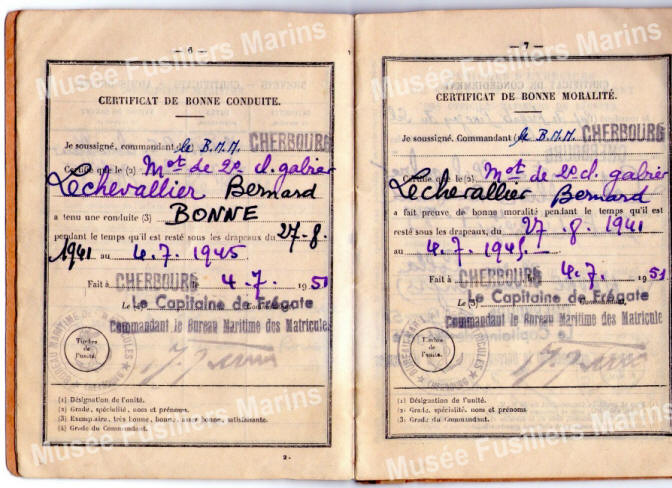 — 6 —
CERTIFICAT DE BONNE CONDUITE.
Je soussigné, commandant (1) le B.M.M. CHERBOURG
Certifie que le (2) Mot de 2e cl. gabier
Lechevallier Bernard
a tenu une conduite (3) BONNE
pendant le temps qu'il est resté sous les drapeaux du 27-8-
1941 au 4.7.1945
Fait à CHERBOURG le 4.7. 1951
Le (4)
Le Capitaine de Frégate
Commandant le Bureau Maritime des Matricules
Timbre
de
l'unité.
BUREAU MARITIME DES MATRICULES
(1) Désignation de l'unité.
(2) Grade, spécialité, nom et prénoms.
(3) Exemplaire, très bonne, bonne, assez bonne, satisfaisante.
(4) Grade du Commandant.
2.
— 7 —
CERTIFICAT DE BONNE MORALITÉ.
Je soussigné, Commandant (1) le B.M.M. CHERBOURG
Certifie que le (2) Mot de 2e cl. gabier
Lechevallier Bernard
a fait preuve de bonne moralité pendant le temps qu'il est
resté sous les drapeaux, du 27.8.1941
au 4.7.1945.
Fait à CHERBOURG le 4.7. 1951
Le (3)
Le Capitaine de Frégate
Commandant le Bureau Maritime des Matricule
Timbre
de
l'unité.
(1) Désignation de l'unité.
(2) Grade, spécialité, nom et prénoms
(3) Grade du Commandant.
Musée Fusiliers Marins
Musée Fusiliers Marins
Musée Fusiliers Marins
Musée Fusiliers Marins